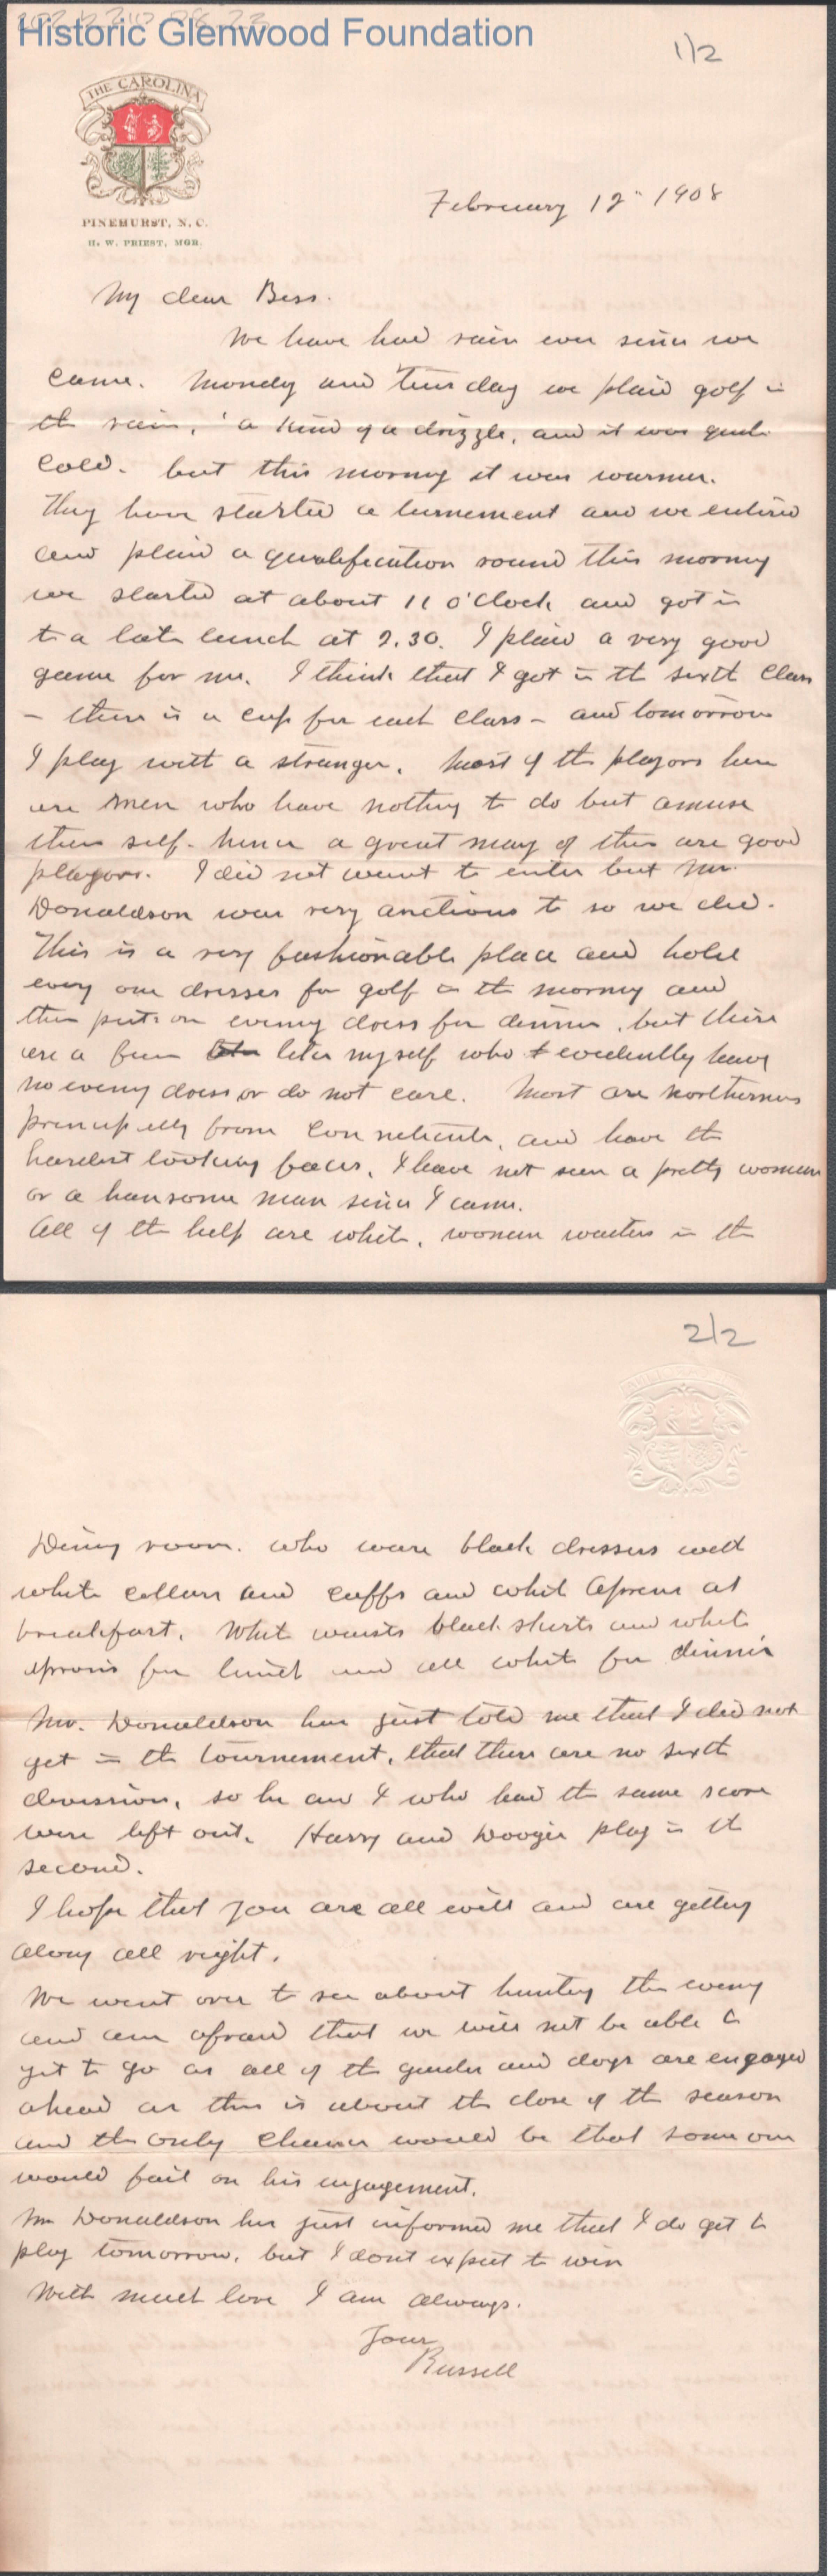 Historic Glenwood Foundation
1/2
THE CAROLINA
PINEHURST, N. C.
H. W. PRIEST, MGR.
February 12" 1908
My dear Bess.
We have had rain ever since we
came. Monday and Tuesday we plaid golf in
the rain, a kind of a drizzle, and it was quite
cold. but this morning it was warmer.
They have started a turnement and we entired
and plaid a qualification round this morning
we started at about 11 o'clock and got in
to a late lunch at 2.30. I plaid a very good
game for me. I think that I got in the sixth class
- there is a cup for each class - and tomorrow
I play with a stranger. Most of the players here
are men who have nothing to do but amuse
them self. hence a great many of them are good
players. I did not want to enter but Mr.
Donaldson was very anctious to so we did.
This is a very fashionable place and hotel
every one dresses for golf in the morning and
then puts on evening dress for dinner, but there
are a few like myself who evidently have
no eveny dress or do not care. Most are northerners
principally from Connecticute, and have the
hardest looking faces, I have not seen a pretty woman
or a hansome man since I came.
All of the help are white, women waiters in the
2/2
Dining room. who ware black dresses with
white collars and cuffs and white aprens at
breakfast. White waists black skirts and white
aprons for lunch and all white for dinnir
Mr. Donaldson has just told me that I did not
get in the tournement, that there are no sixth
devission, so he and I who had the same score
were left out. Harry and play in the
second.
I hope that you are all well and are getting
along all right.
We went over to see about hunting this eveny
and am afraid that we will not be able to
get to go as all of the guides and dogs are engaged
ahead as this is about the close of the season
and the only chance would be that some one
would fail on his engagement.
Mr Donaldson has just informed me that I do get to
play tomorrow, but I dont expect to win
With much love I am always.
Your
Russell